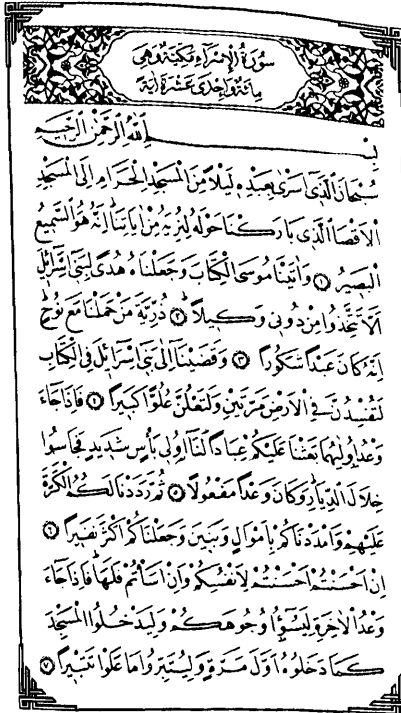 سُورَةُ الْإِسْرَاءِ مَكِّيَّةٌ وَهِيَ
مِائَةٌ وَإِحْدَى عَشْرَةَ اٰيَةً
بِسْمِ اللّٰهِ الرَّحْمٰنِ الرَّحِيمِ
سُبْحَانَ الَّذِٓي اَسْرٰى بِعَبْدِهِ لَيْلًا مِنَ الْمَسْجِدِ الْحَرَامِ اِلَى الْمَسْجِدِ
الْاَقْصَا الَّذِي بَارَكْنَا حَوْلَهُ لِنُرِيَهُ مِنْ اٰيَاتِنَاۜ اِنَّهُ هُوَ السَّمِيعُ
الْبَصِيرُ ﴿١﴾ وَاٰتَيْنَا مُوسَى الْكِتَابَ وَجَعَلْنَاهُ هُدًى لِبَنِٓي اِسْرَٓائِلَ
اَلَّا تَتَّخِذُوا مِنْ دُونِي وَكِيلًاۜ ﴿٢﴾ ذُرِّيَّةَ مَنْ حَمَلْنَا مَعَ نُوحٍۜ
اِنَّهُ كَانَ عَبْدًا شَكُورًا ﴿٣﴾ وَقَضَيْنَٓا اِلٰى بَنِٓي اِسْرَٓائِلَ فِي الْكِتَابِ
لَتُفْسِدُنَّ فِي الْاَرْضِ مَرَّتَيْنِ وَلَتَعْلُنَّ عُلُوًّا كَبِيرًا ﴿٤﴾ فَاِذَا جَٓاءَ
وَعْدُ اُولٰيهُمَا بَعَثْنَا عَلَيْكُمْ عِبَادًا لَنَٓا اُو۬لِي بَأْسٍ شَدِيدٍ فَجَاسُوا
خِلَالَ الدِّيَارِ وَكَانَ وَعْدًا مَفْعُولًا ﴿٥﴾ ثُمَّ رَدَدْنَا لَكُمُ الْكَرَّةَ
عَلَيْهِمْ وَاَمْدَدْنَاكُمْ بِاَمْوَالٍ وَبَنِينَ وَجَعَلْنَاكُمْ اَكْثَرَ نَفِيرًا ﴿٦﴾
اِنْ اَحْسَنْتُمْ اَحْسَنْتُمْ لِاَنْفُسِكُمْ وَاِنْ اَسَأْتُمْ فَلَهَاۜ فَاِذَا جَٓاءَ
وَعْدُ الْاٰخِرَةِ لِيَسُٓوؤُ۫ا وُجُوهَكُمْ وَلِيَدْخُلُوا الْمَسْجِدَ
كَمَا دَخَلُوهُ اَوَّلَ مَرَّةٍ وَلِيُتَبِّرُوا مَا عَلَوْا تَتْبِيرًا ﴿٧﴾